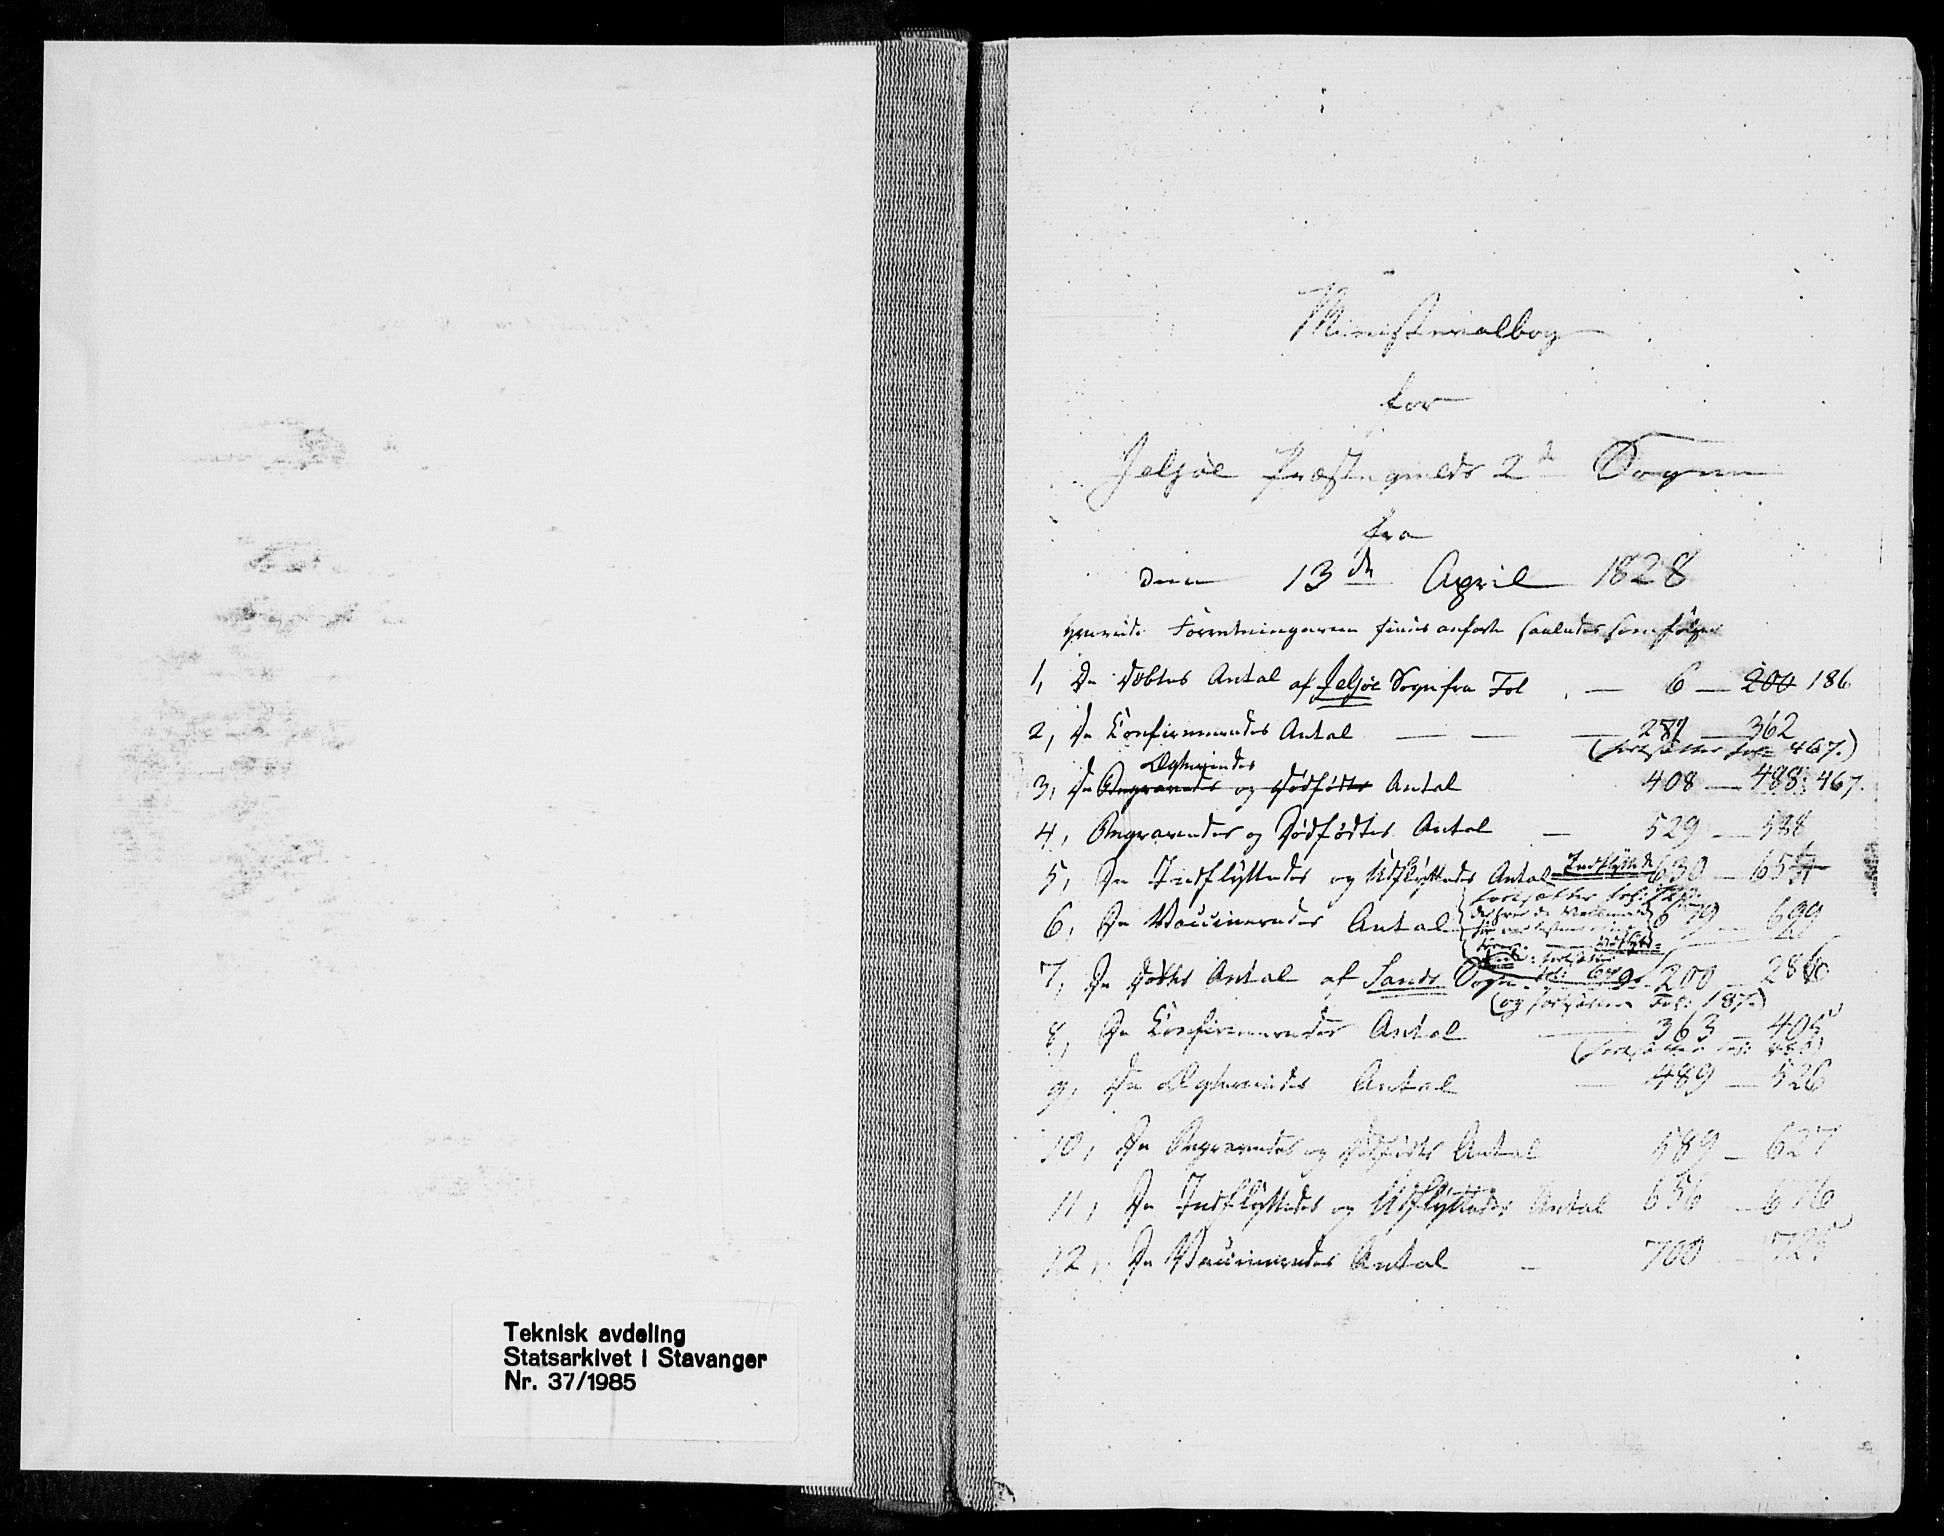 Teknisk avdeling
Statsarkivet i Stavanger
Nr. 37/1985
Ministerialbog
for
Jelsøe Præstegields 2de Sogne
fra
den 13de April 1828
Forretningerne findes anførte saaledes som følger
1, De Døbtes Antal af Jelsøe Sogn fra Fol. — 6 — 200 186
2, De Confirmeredes Antal — — — 287 — 362
(fortsættes Fol: 467.)
Ægteviedes
3, De Begravedes og Dødfødtes Antal 408 — 488: 467.
4, Begravedes og Dødfødtes Antal — 529 — 588
5, De Indflyttedes og Udflyttedes Antal Indflyttede 630 — 655
fortsættes
6, De Vaccineredes Antal 679 — 699
7, De Døbtes Antal af Sands Sogn 200 — 286
(og fortsættes Fol: 187.)
8, De Confirmeredes Antal — 363 — 405
(fortsættes Fol:
9, De Ægteviedes Antal — 489 — 526
10, De Begravedes og Dødfødtes Antal 589 — 627
11, De Indflyttedes og Udflyttedes Antal 656 — 676
12, De Vaccineredes Antal — 700 — 725